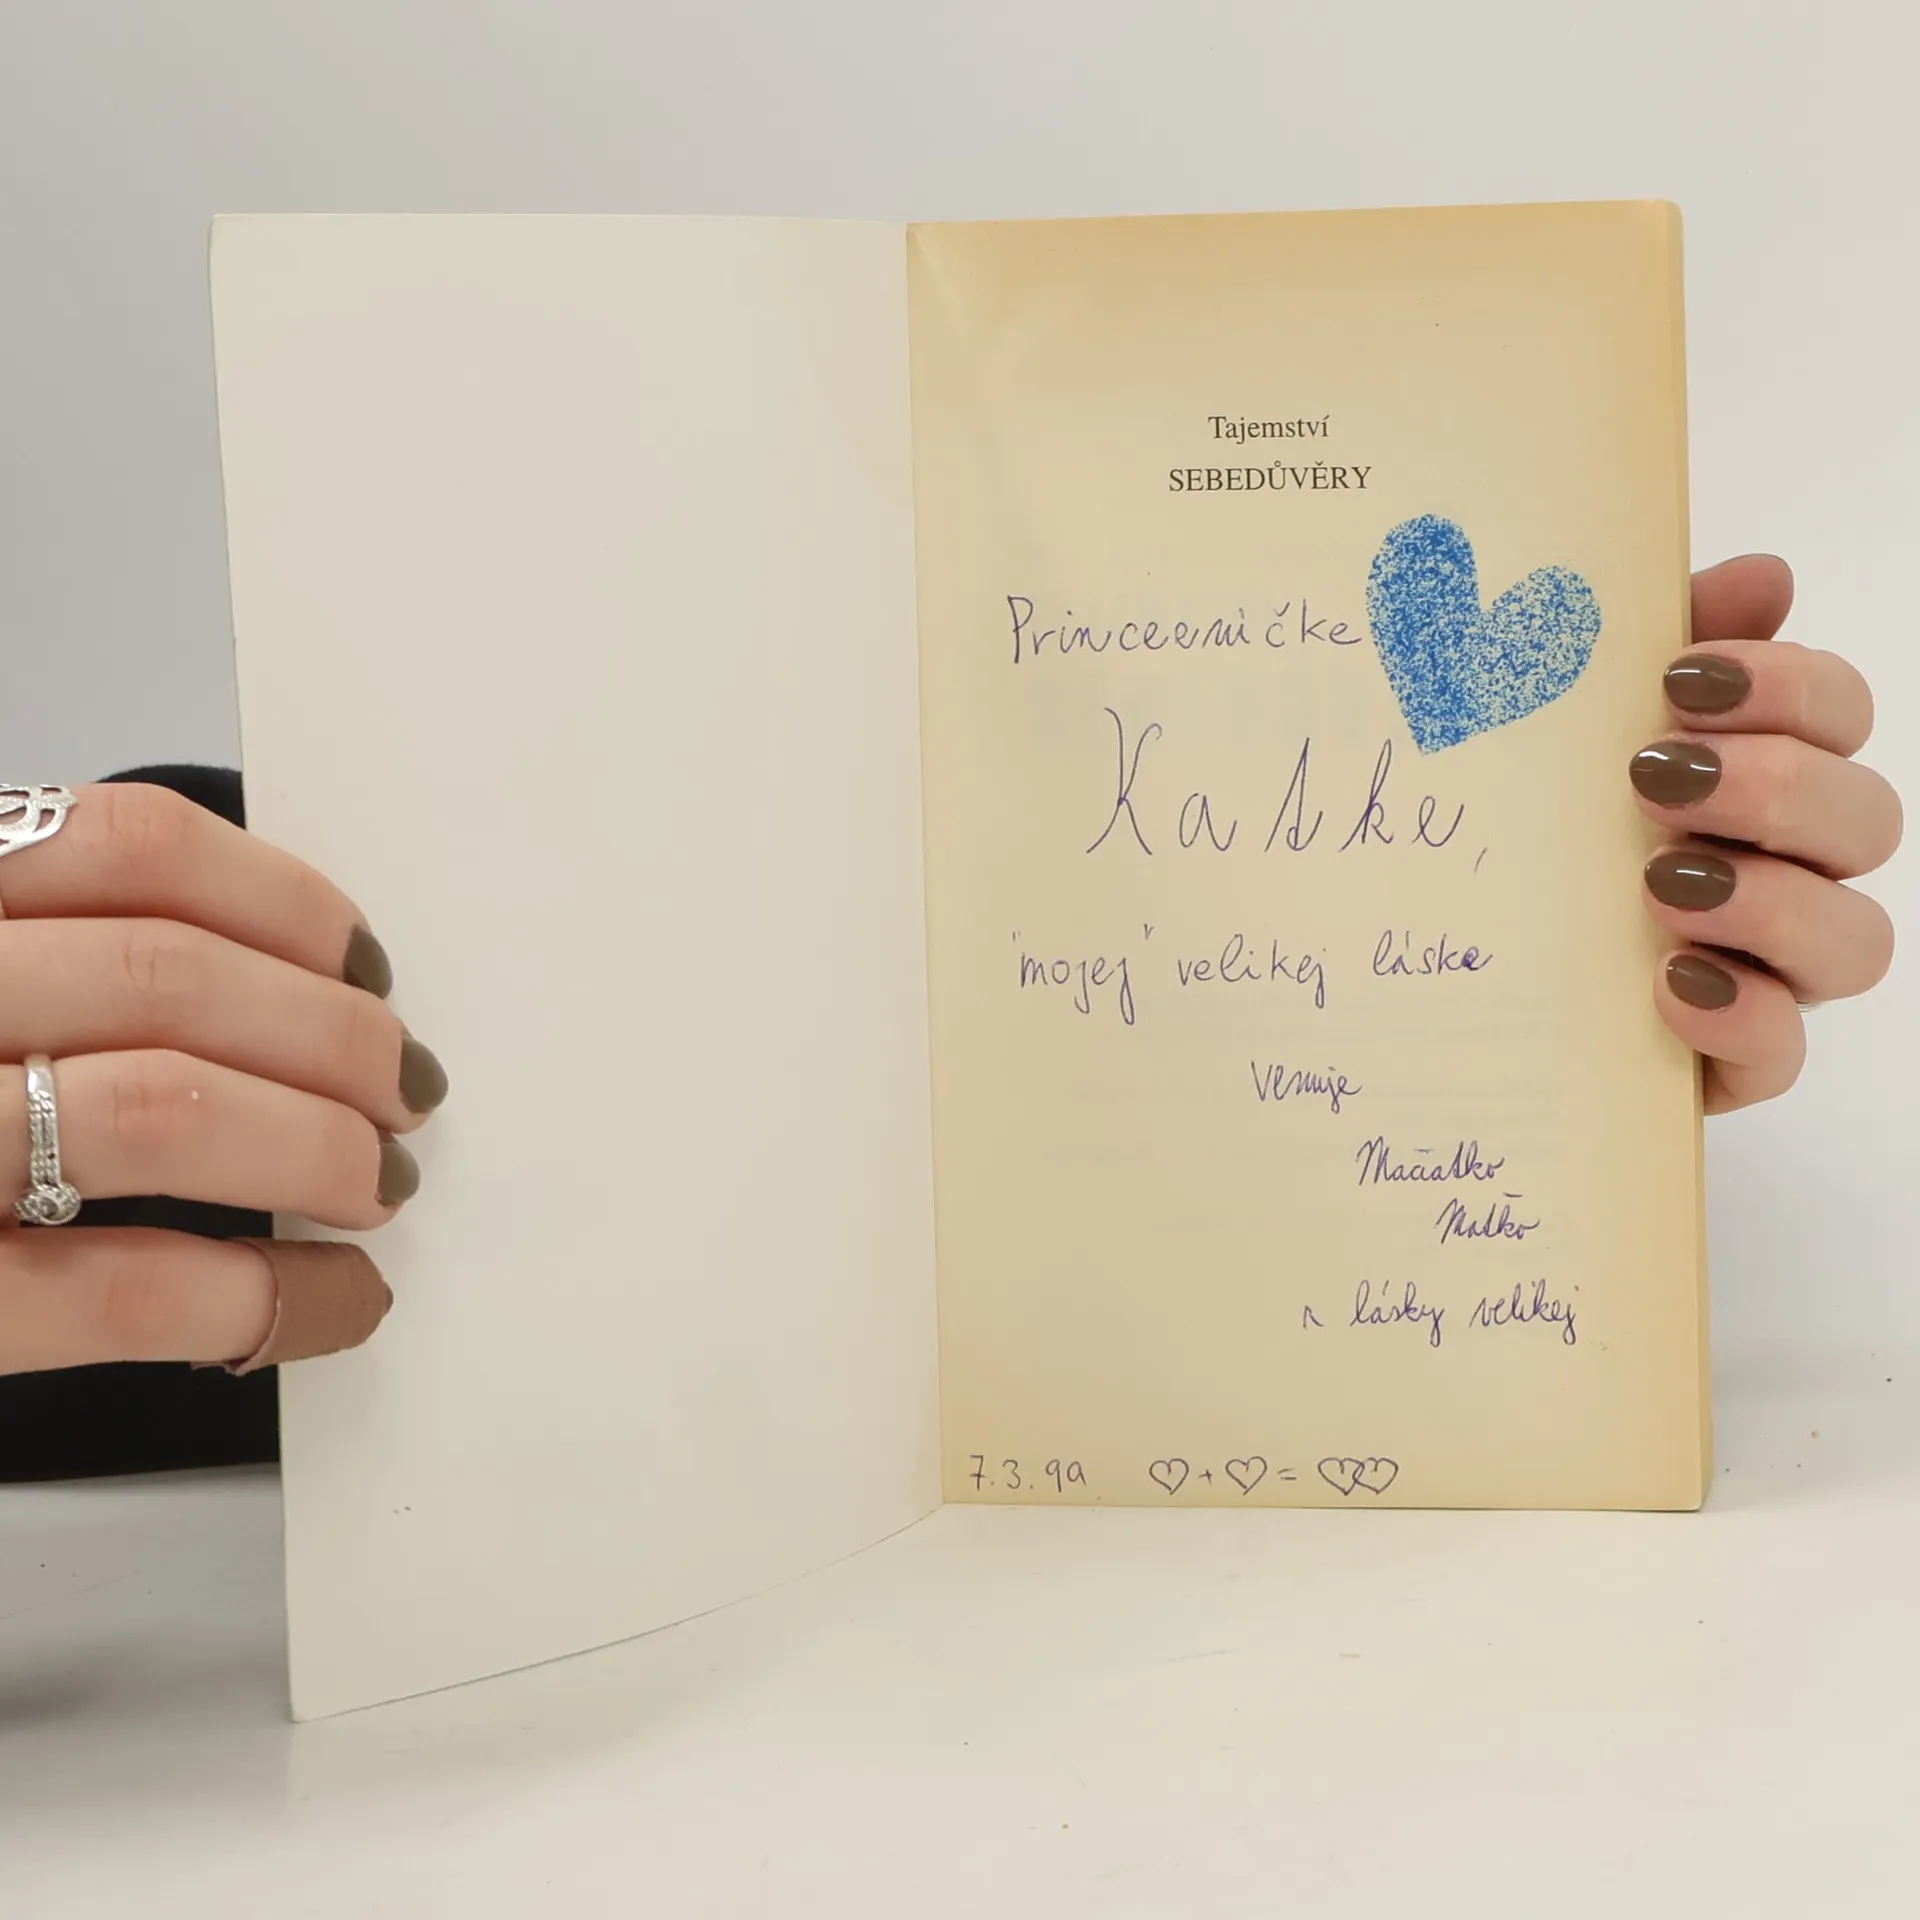 Tajemství
SEBEDŮVĚRY
Princezničke
Katke,
"mojej" velikej láske
Venuje
Mačiatko
Maťko
z lásky velikej
7.3.99 ♡ + ♡ = ♡♡